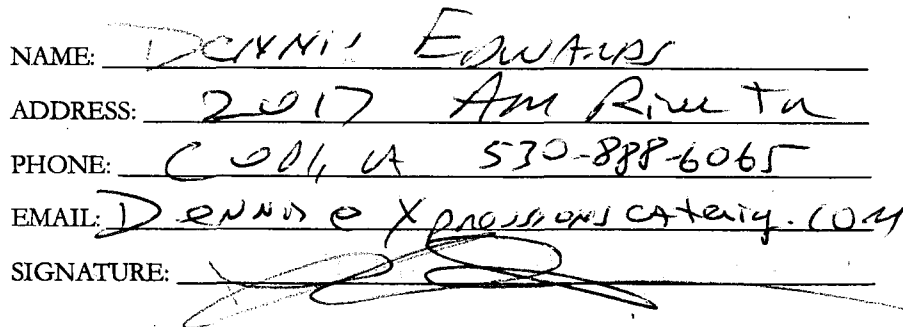 NAME: Dennis Edwards
ADDRESS: 2017 Am River Tr
PHONE: Cool, CA 530-888-6065
EMAIL: Dennis@Xpressionscatering.com
SIGNATURE: